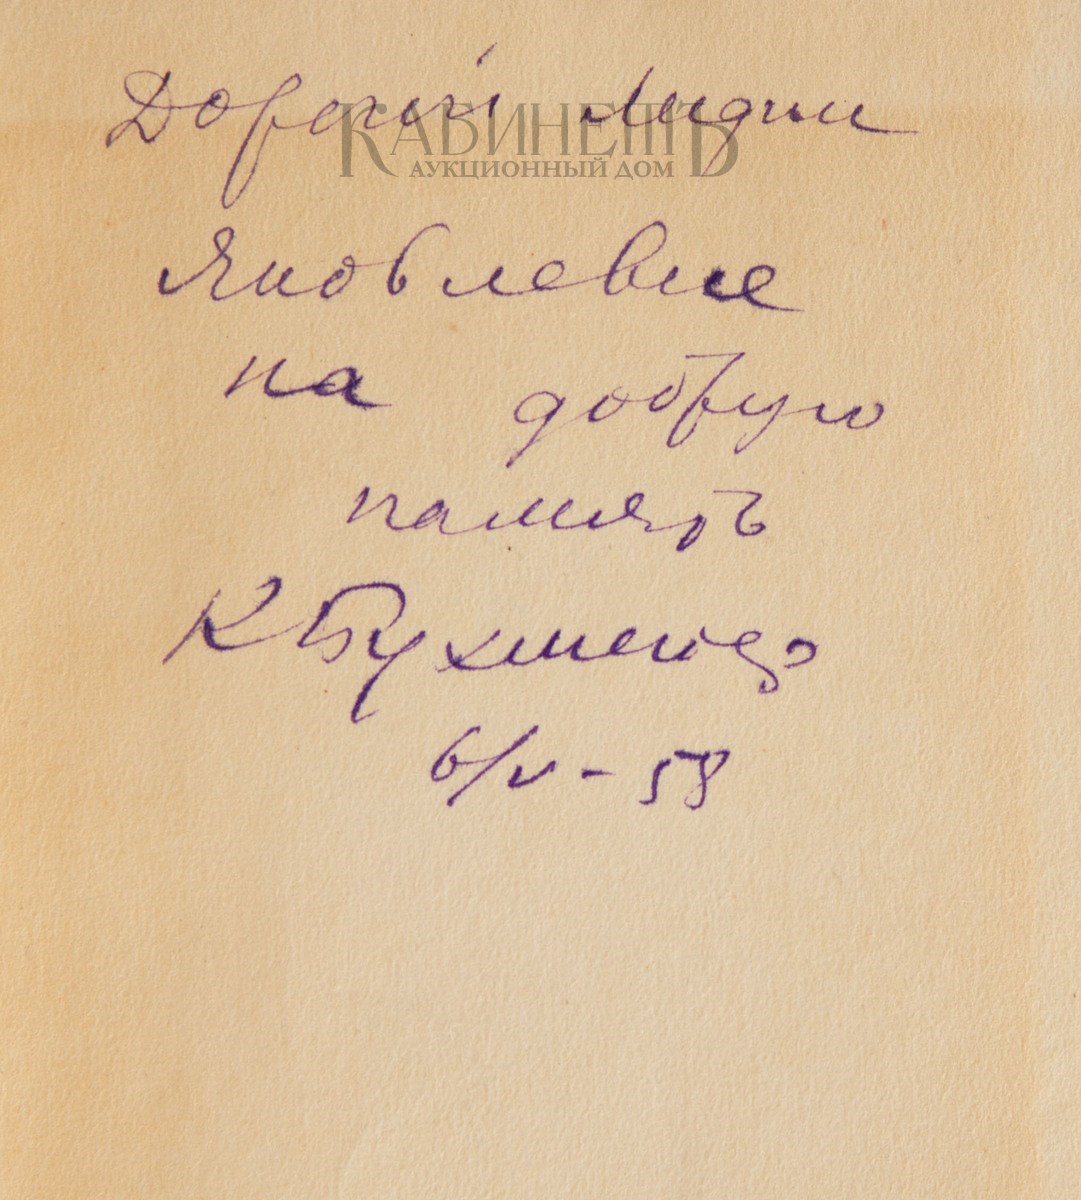 Дорогой Лидии
КАБИНЕТЪ
АУКЦИОННЫЙ ДОМ
Яковлевне
на добрую
память
К
6/V - 58